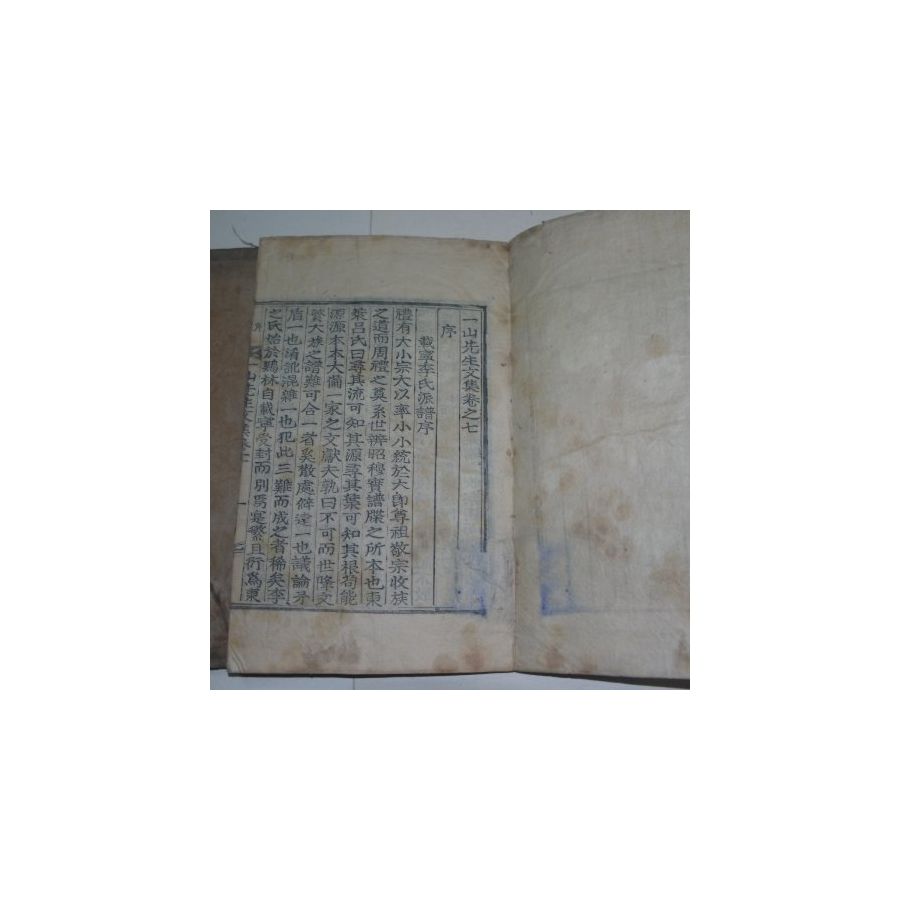 一山先生文集卷之七
序
載寧李氏派譜序
禮有大小宗大以率小小統於大卽尊祖敬宗收族
之道而周禮之奠系世辨昭穆實譜牒之所本也東
萊呂氏曰尋其流可知其源尋其葉可知其根苟能
源源本本大備一家之文獻夫孰曰不可而世降文
繁大族之譜難可合一者矣散處僻遠一也議論矛
盾一也淆訛混雜一也犯此三難而成之者稀矣李
之氏始於鷄林自載寧受封而別焉寔繁且衍爲東
一山先生文集卷七